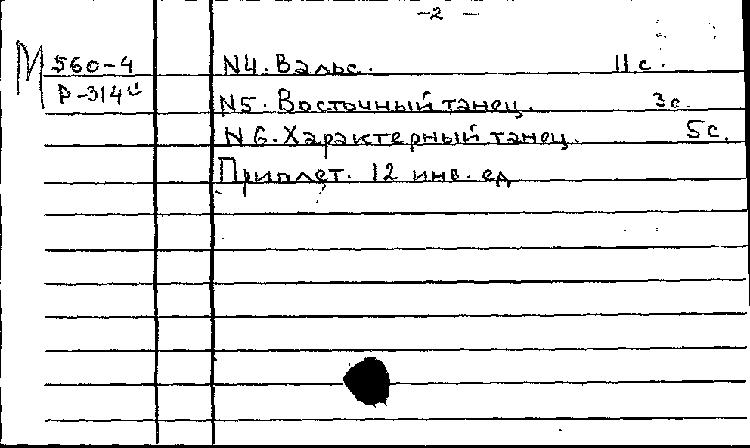 -2-
М 560-4 N4. Вальс. 11 с.
Р-314й N5. Восточный танец. 3с.
N 6. Характерный танец. 5с.
Приплет. 12 инв. ед